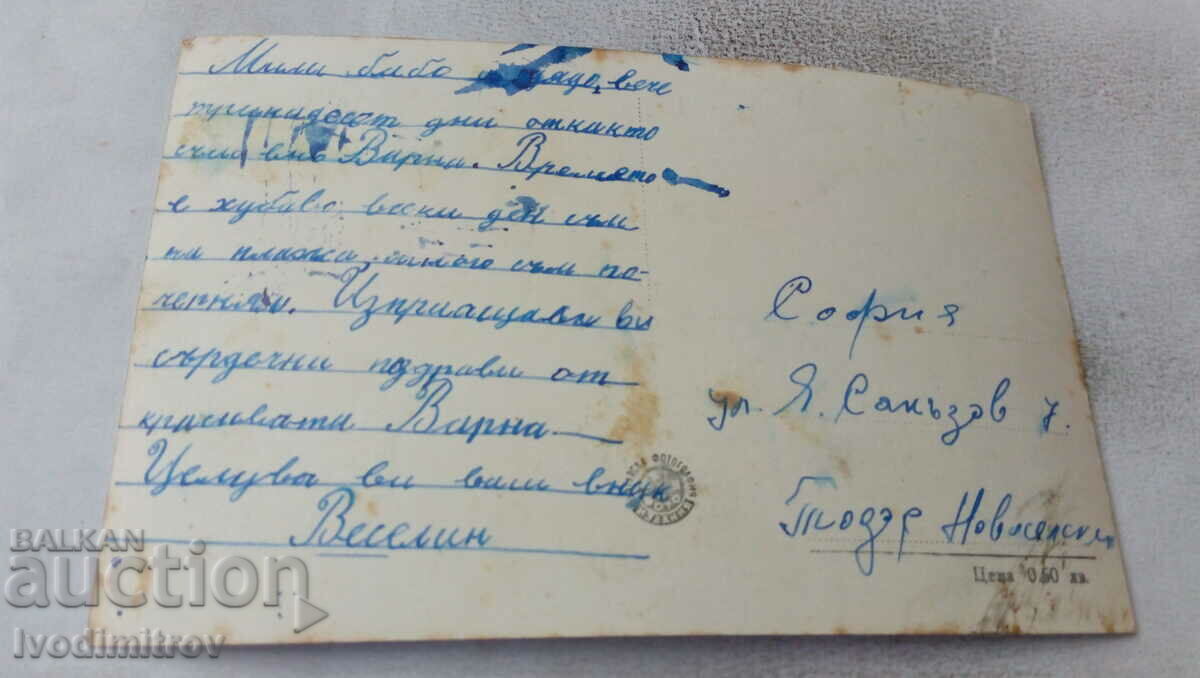 Мили бабо и дядо, вече
тринадесет дни откакто
съм във Варна. Времето
е хубаво всеки ден съм
на плажа, много съм по-
чернял. Изпращам ви
сърдечни поздрави от
красивата Варна.
Целува ви ваш внук
Веселин
София
ул. Я. Сакъзов 7.
Тодор Новоселски
Цена 0.60 лв.
BALKAN
auction
Ivodimitrov